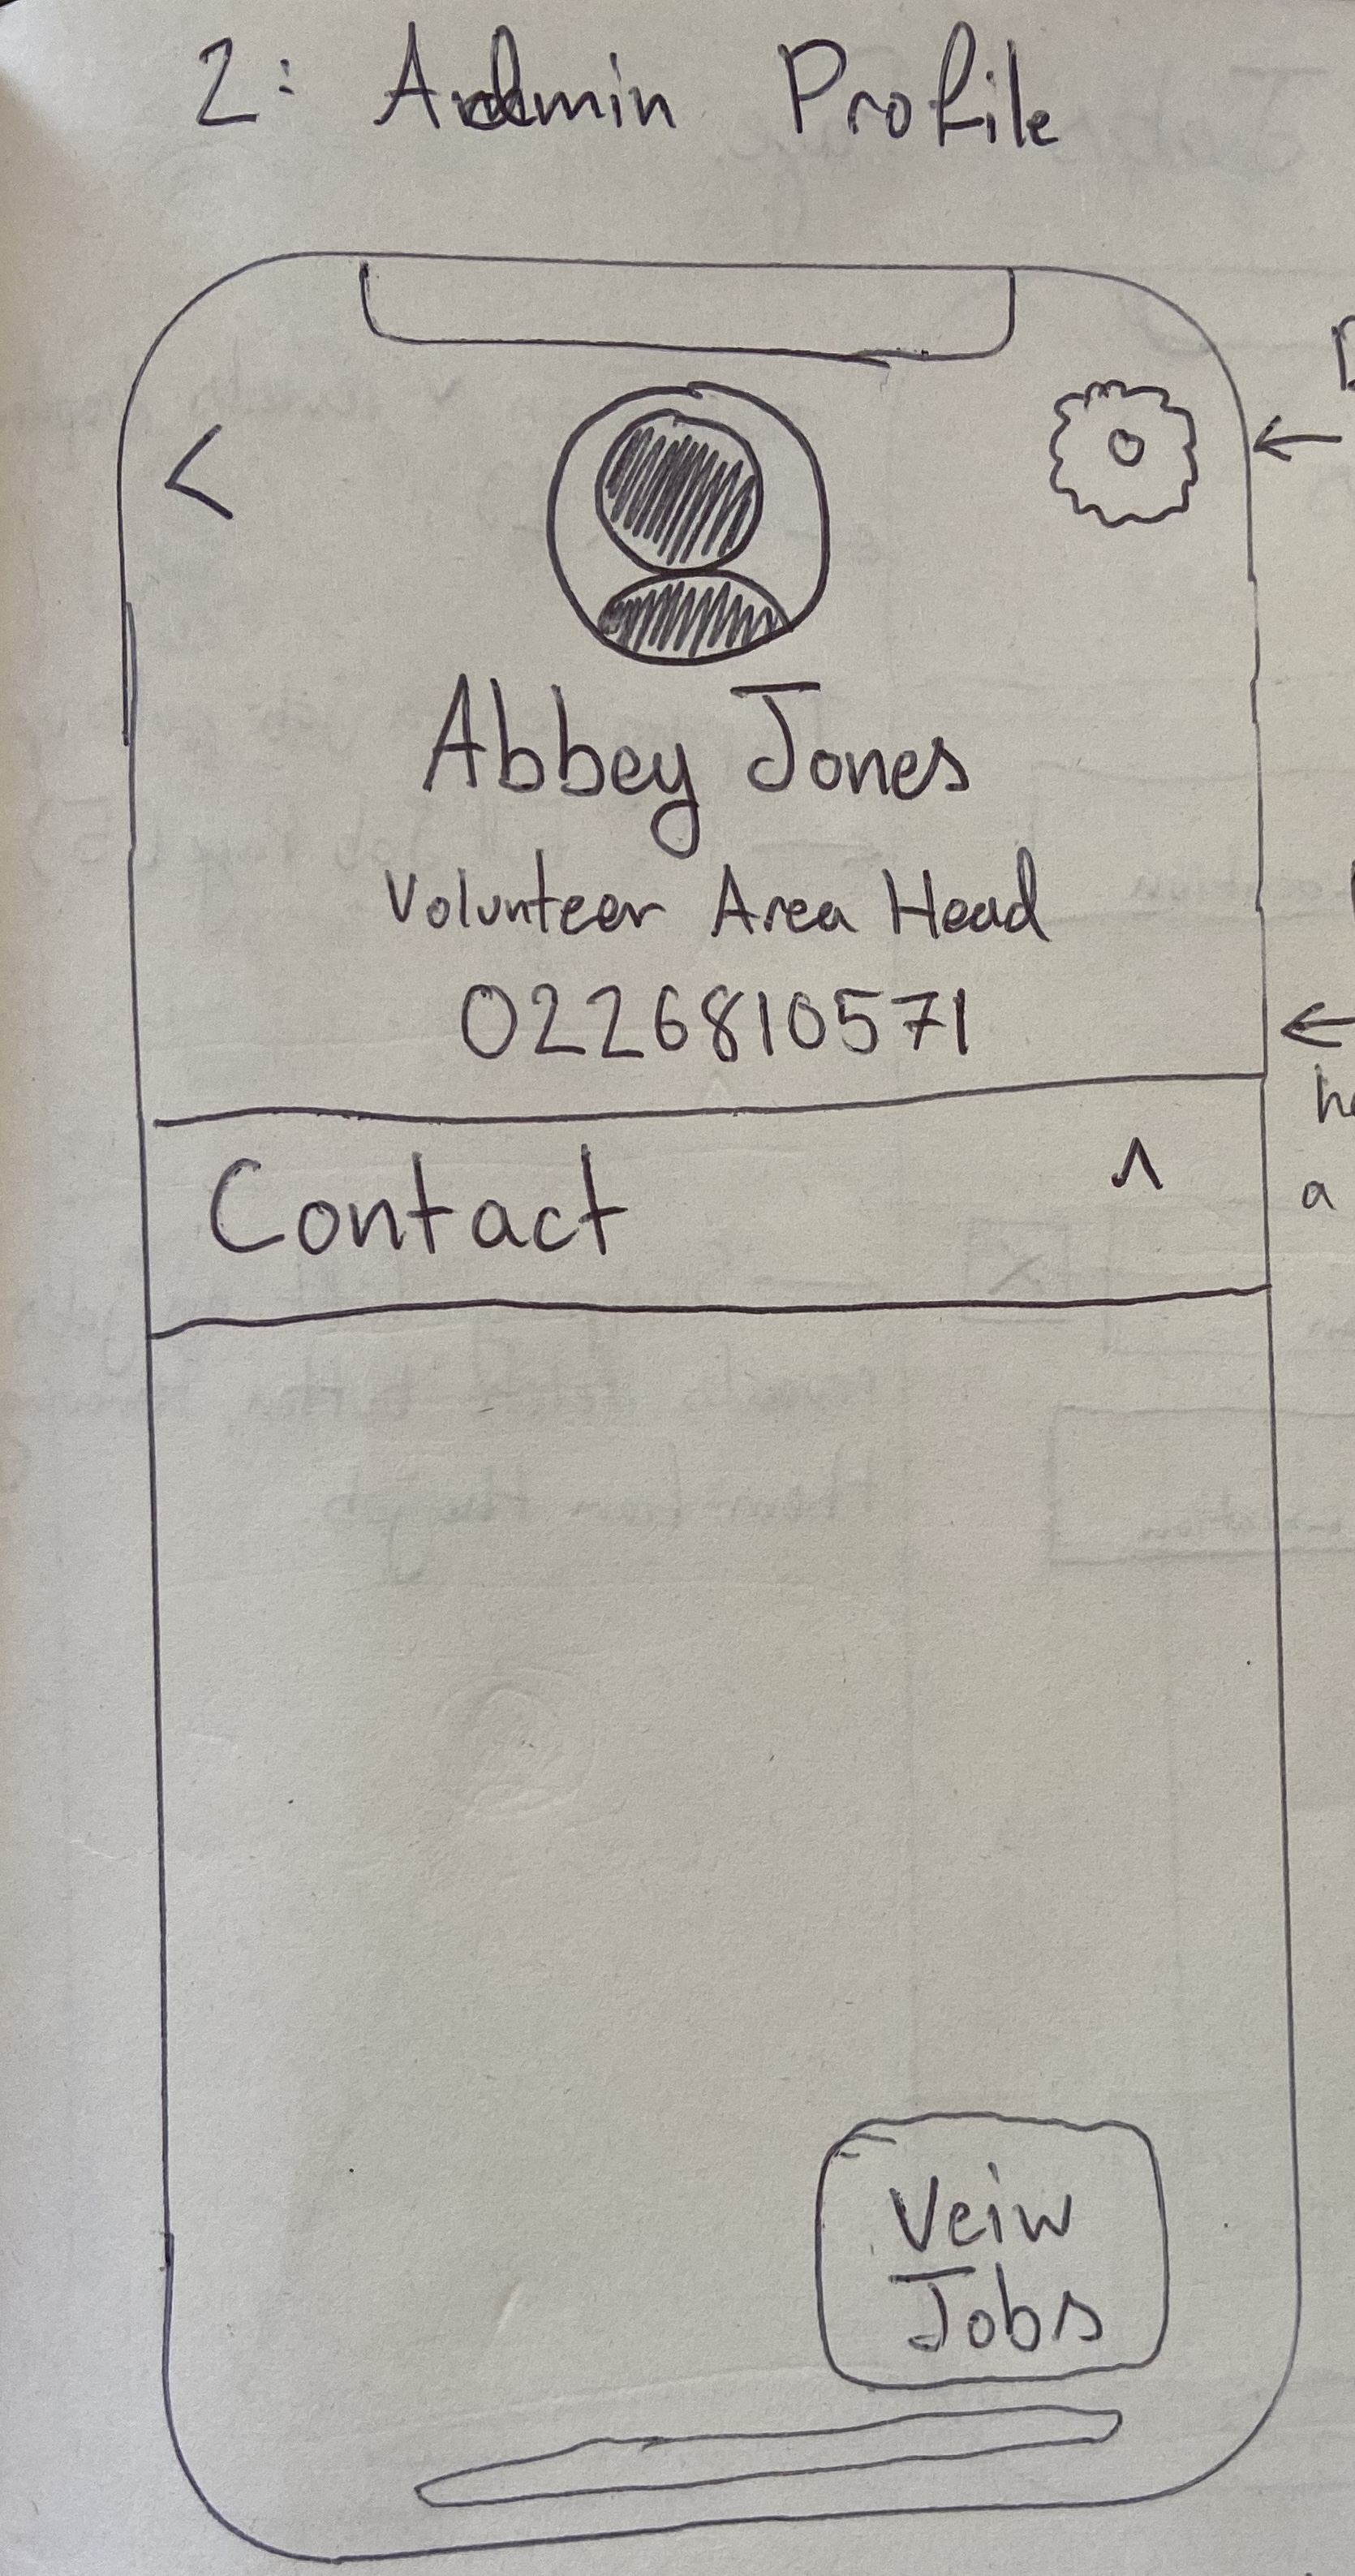 2: Admin Profile
<
Abbey Jones
Volunteer Area Head
0226810571
Contact ^
a
Veiw
Jobs